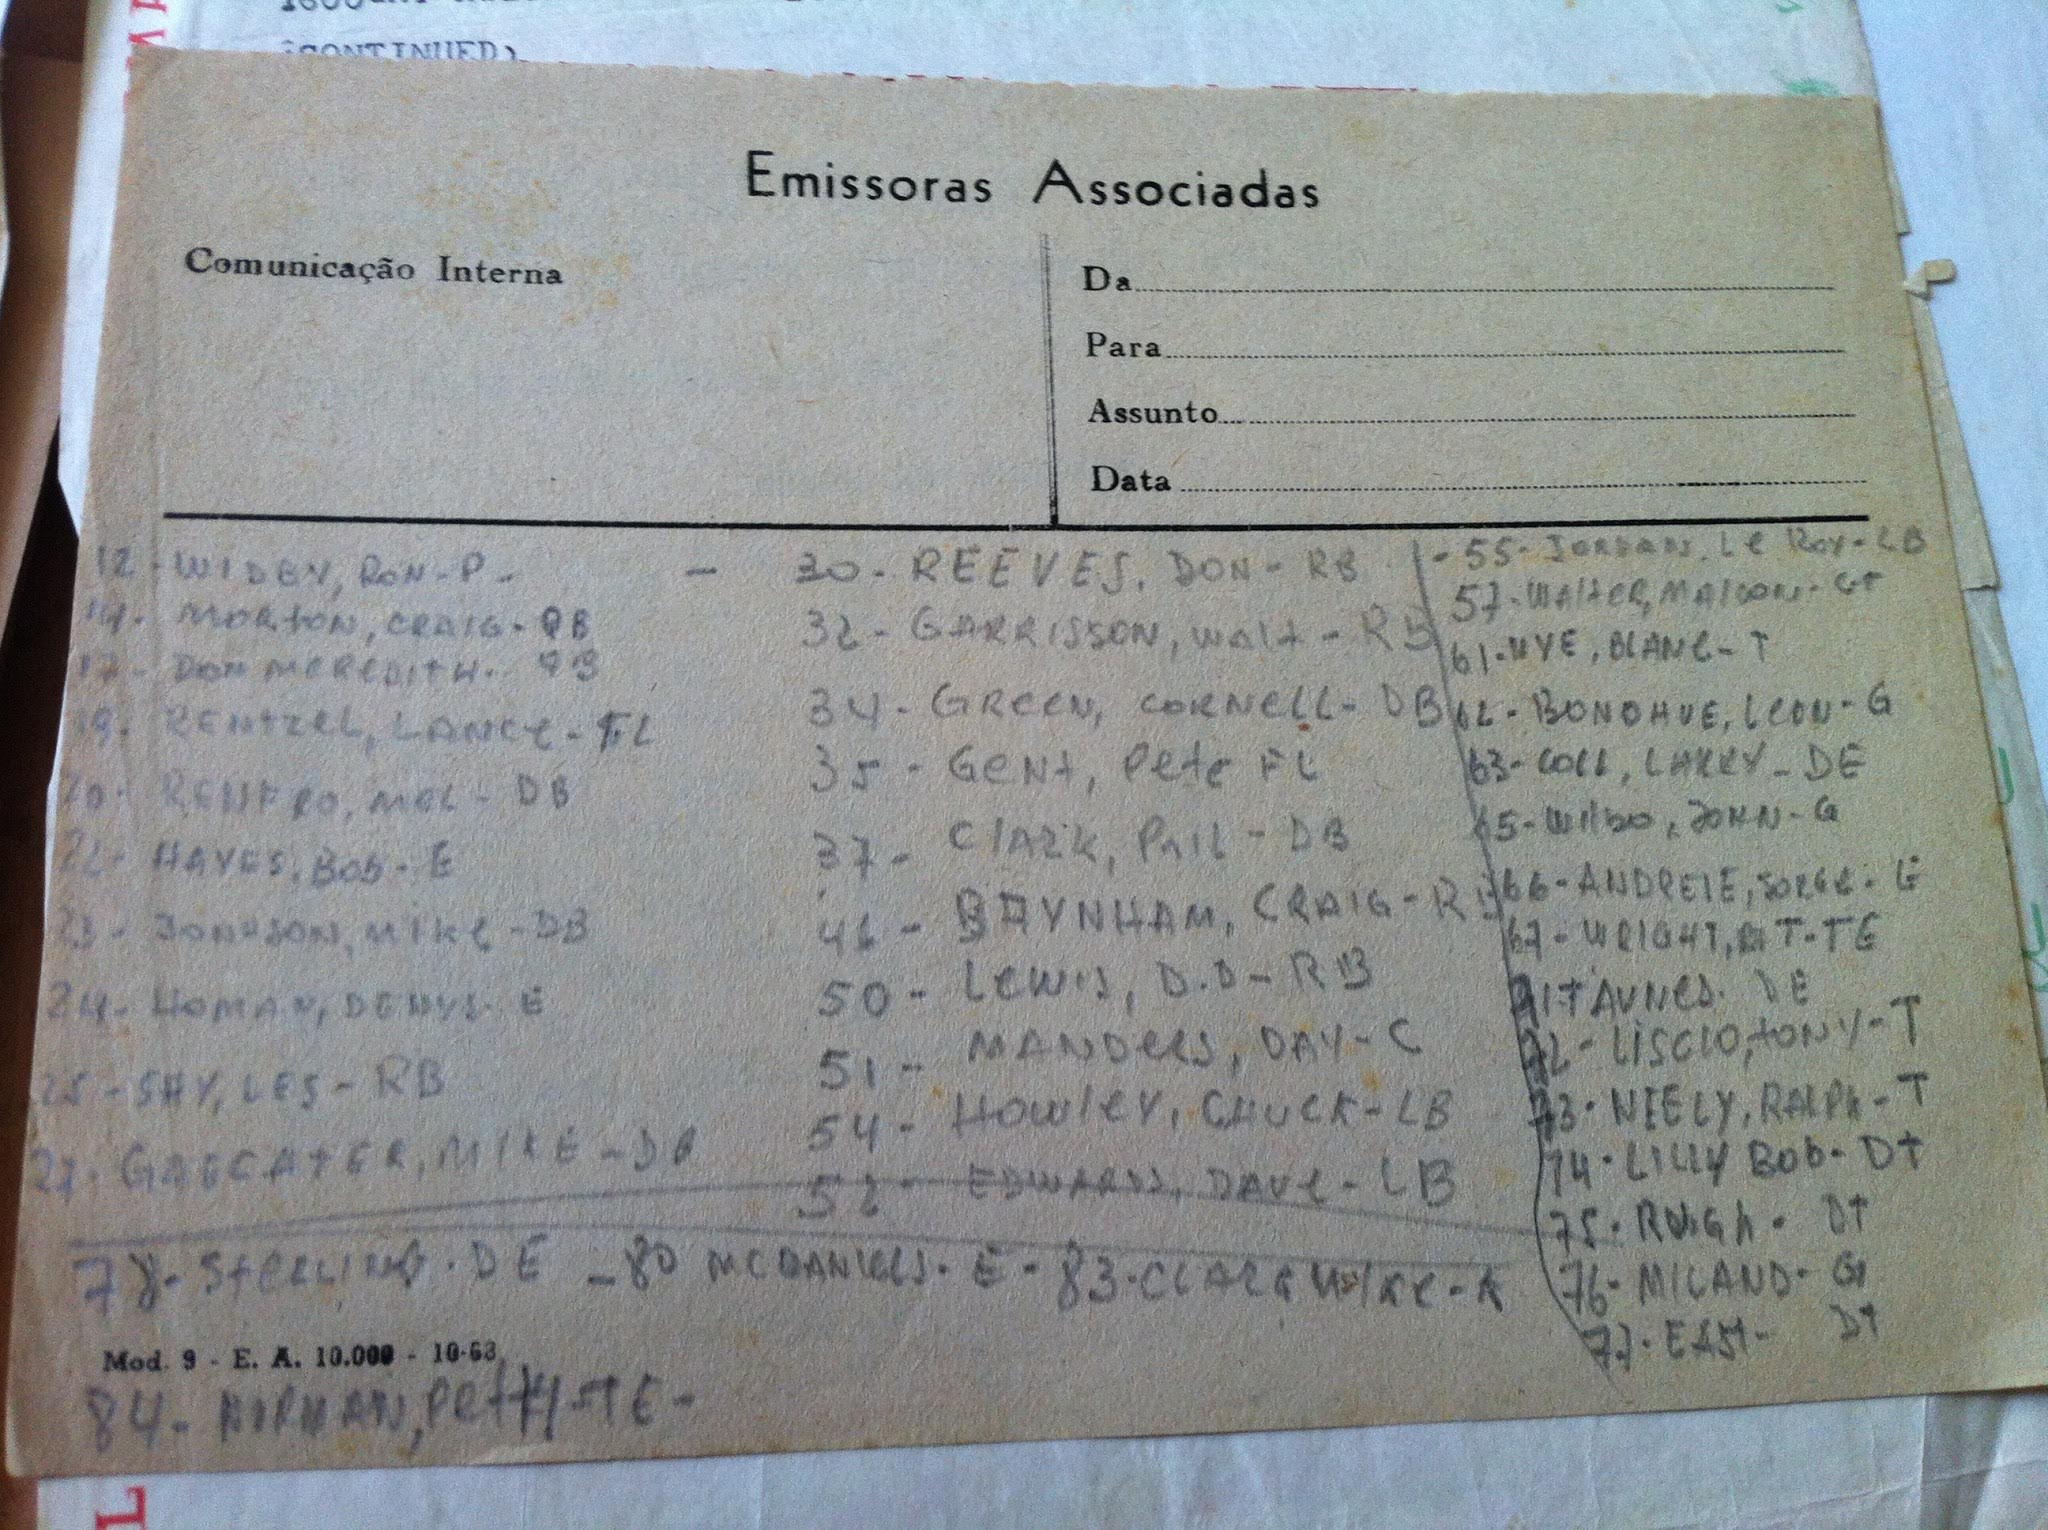 (CONTINUED)
Emissoras Associadas
Comunicação Interna
Da
Para
Assunto
Data
12 - WIDBY, RON - P -
14 - MORTON, CRAIG - QB
17 - DON MEREDITH - QB
19 - RENTZEL, LANCE - FL
20 - RENFRO, MEL - DB
22 - HAYES, BOB - E
23 - JONHSON, MIKE - DB
24 - HOMAN, DENYS - E
25 - SHY, LES - RB
27 - GAECATER, MIKE - DB
- 30 - REEVES, DON - RB
32 - GARRISSON, WALT - RB
34 - GREEN, CORNELL - DB
35 - GENT, Pete FL
37 - Clark, Phil - DB
46 - BAYNHAM, CRAIG - RB
50 - LEWIS, D.D - RB
51 - MANDERS, DAY - C
54 - HOWLEY, CHUCK - LB
52 - EDWARDS, DAVE - LB
- 55 - JORDAN, Le Roy - LB
57 - WALTER, MALCON - GT
61 - NYE, BLANE - T
62 - DONOHUE, LEON - G
63 - COLE, LARRY - DE
65 - WILBO, JOHN - G
66 - ANDREIE, JORGE - G
67 - WRIGHT, - TE
71 - TAUNES - DE
72 - LISCIO, TONY - T
73 - NEELY, RALPH - T
74 - LILLY BOB - DT
75 - - DT
76 - MILAND - G
77 - EAST - DT
78 - STERLING - DE - 80 MCDANIELS - E - 83 - CLARK MIKE - K
Mod. 9 - E. A. 10.000 - 10-63
84 - NORMAN, PETTY - TE -
L